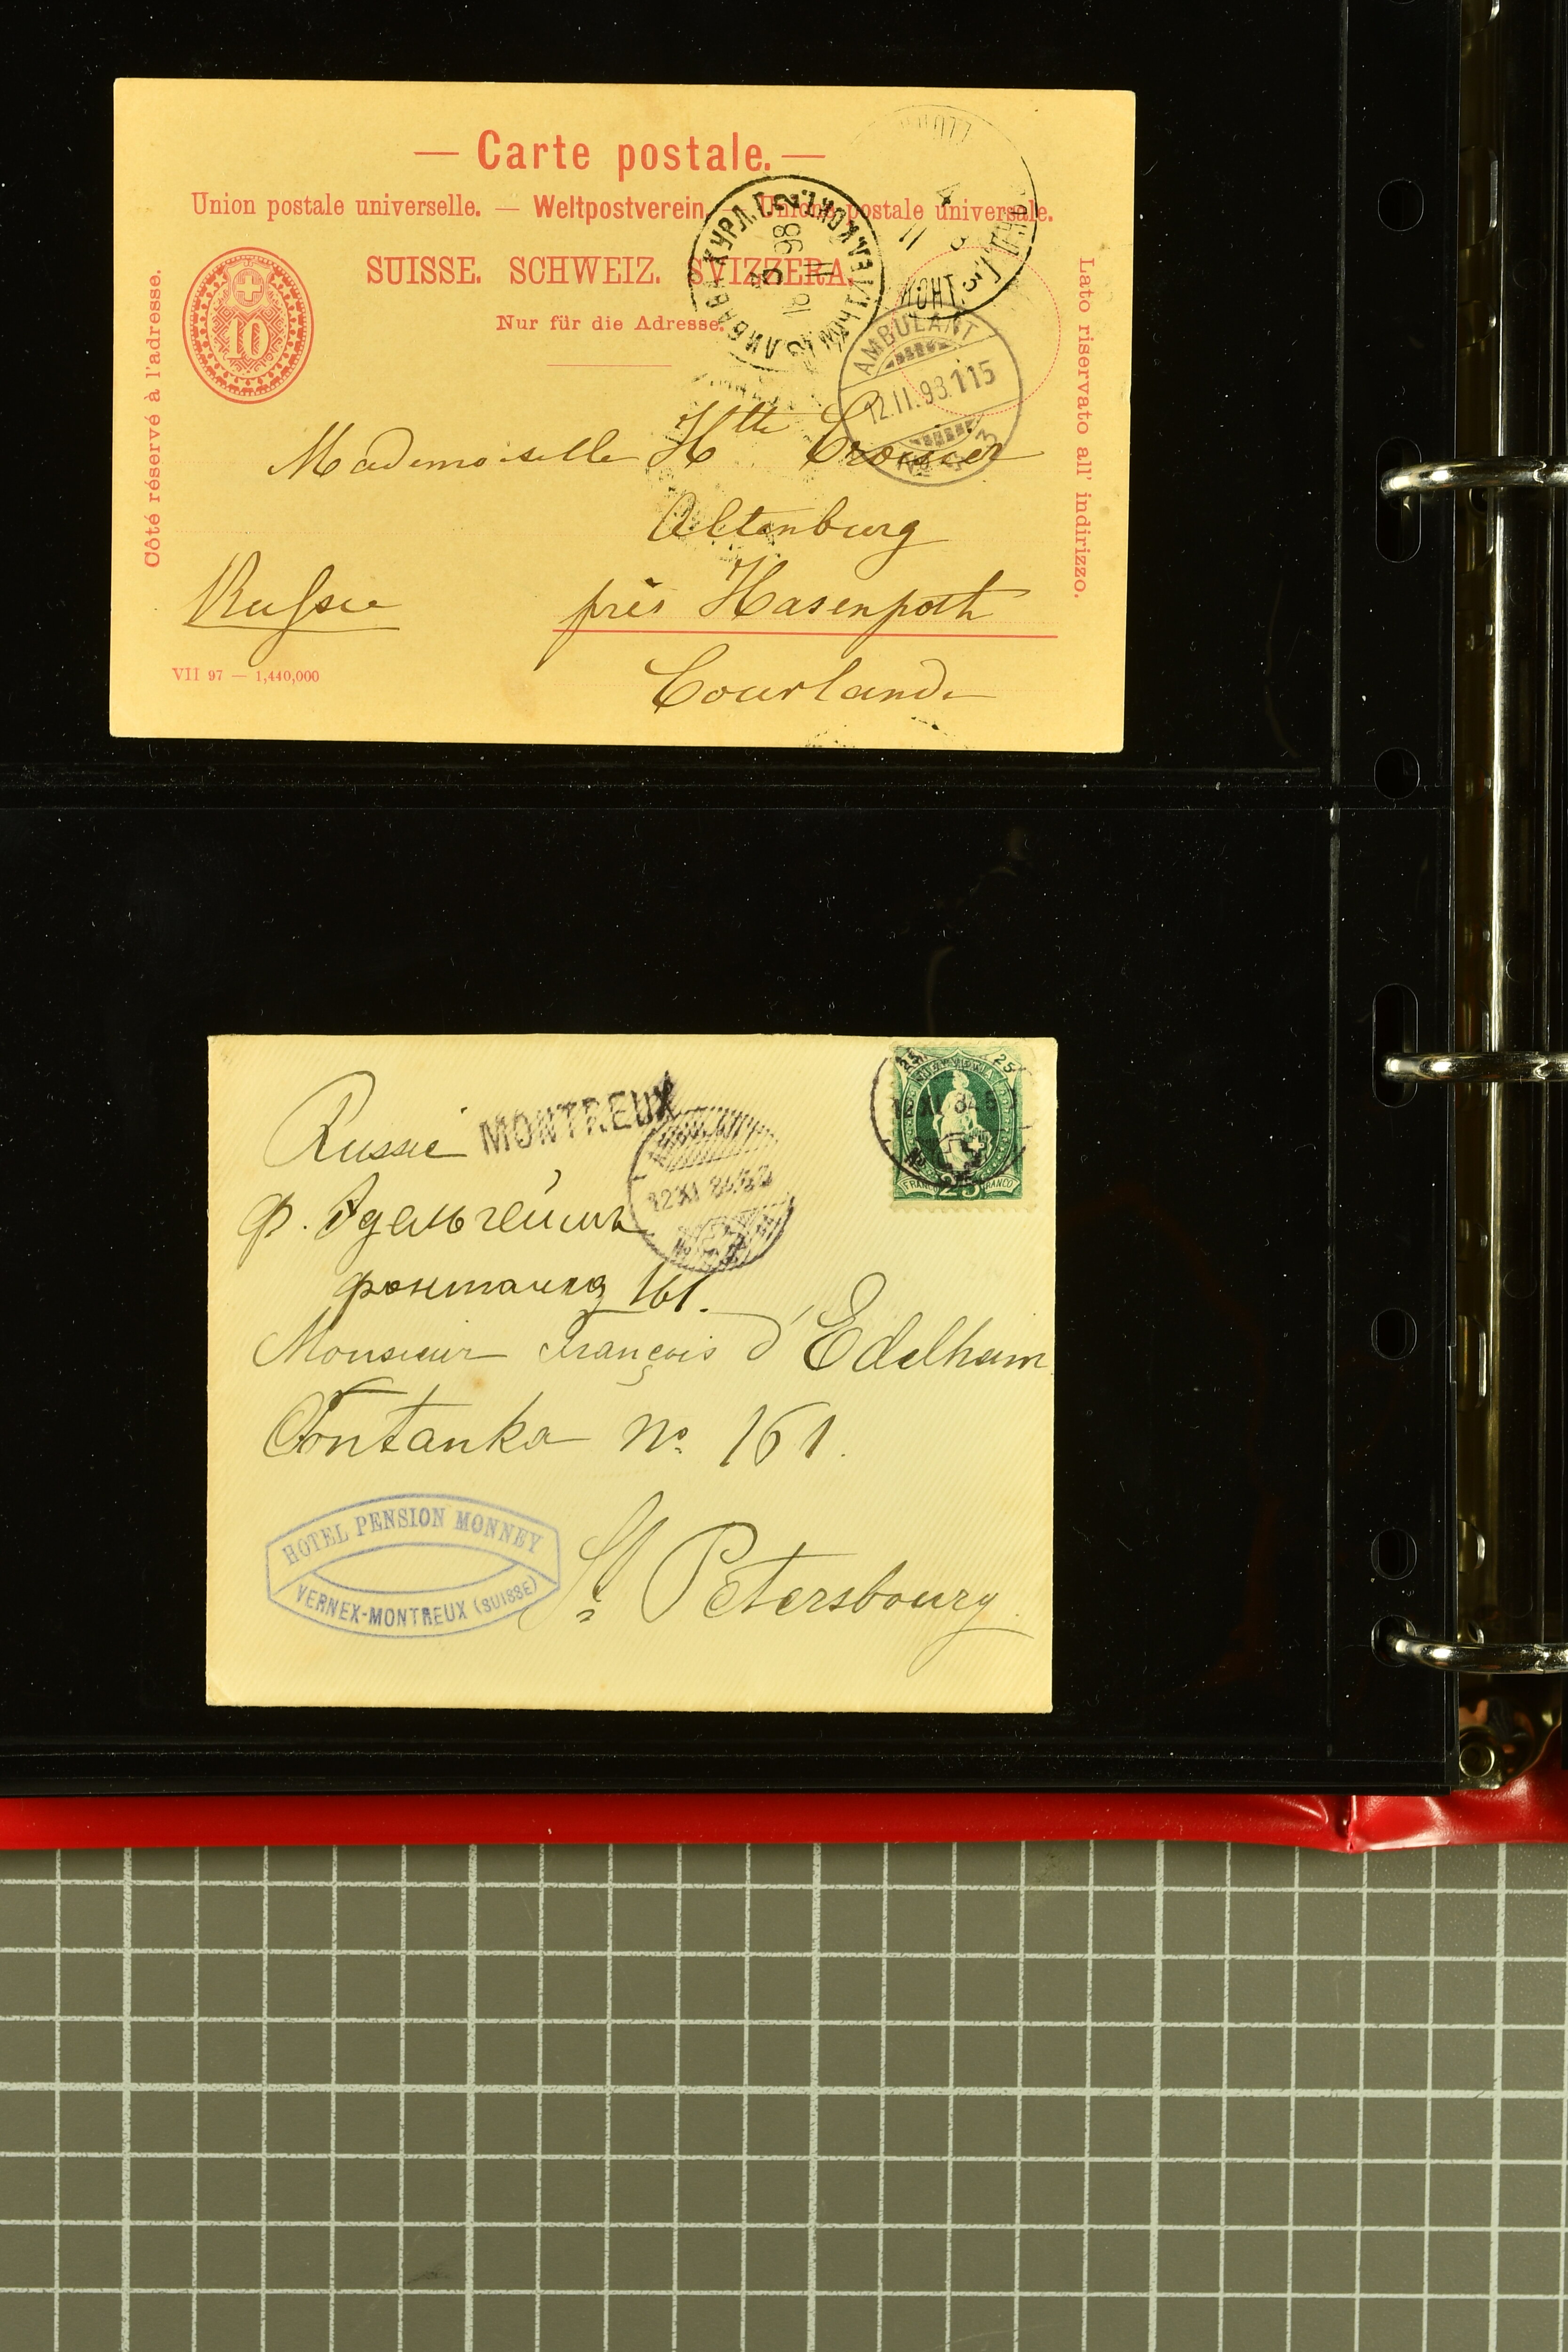 — Carte postale. —
Union postale universelle. — Weltpostverein. — Unione postale universale.
SUISSE. SCHWEIZ. SVIZZERA.
Nur für die Adresse.
Côté réservé à l'adresse.
Lato riservato all' indirizzo.
10
AMBULANT
12.II.98.115
Mademoiselle Htte Croisier
Altenburg
Russie
près Hasenpoth
Courlande
VII 97 — 1,440,000
25 25
FRANCO 25 FRANCO
Russie
MONTREUX
ф. Эдельгеймъ
фонтанка 161.
Monsieur François d'Edelheim
Fontanka No. 161.
HOTEL PENSION MONNEY
VERNEX-MONTREUX (SUISSE)
St Petersbourg